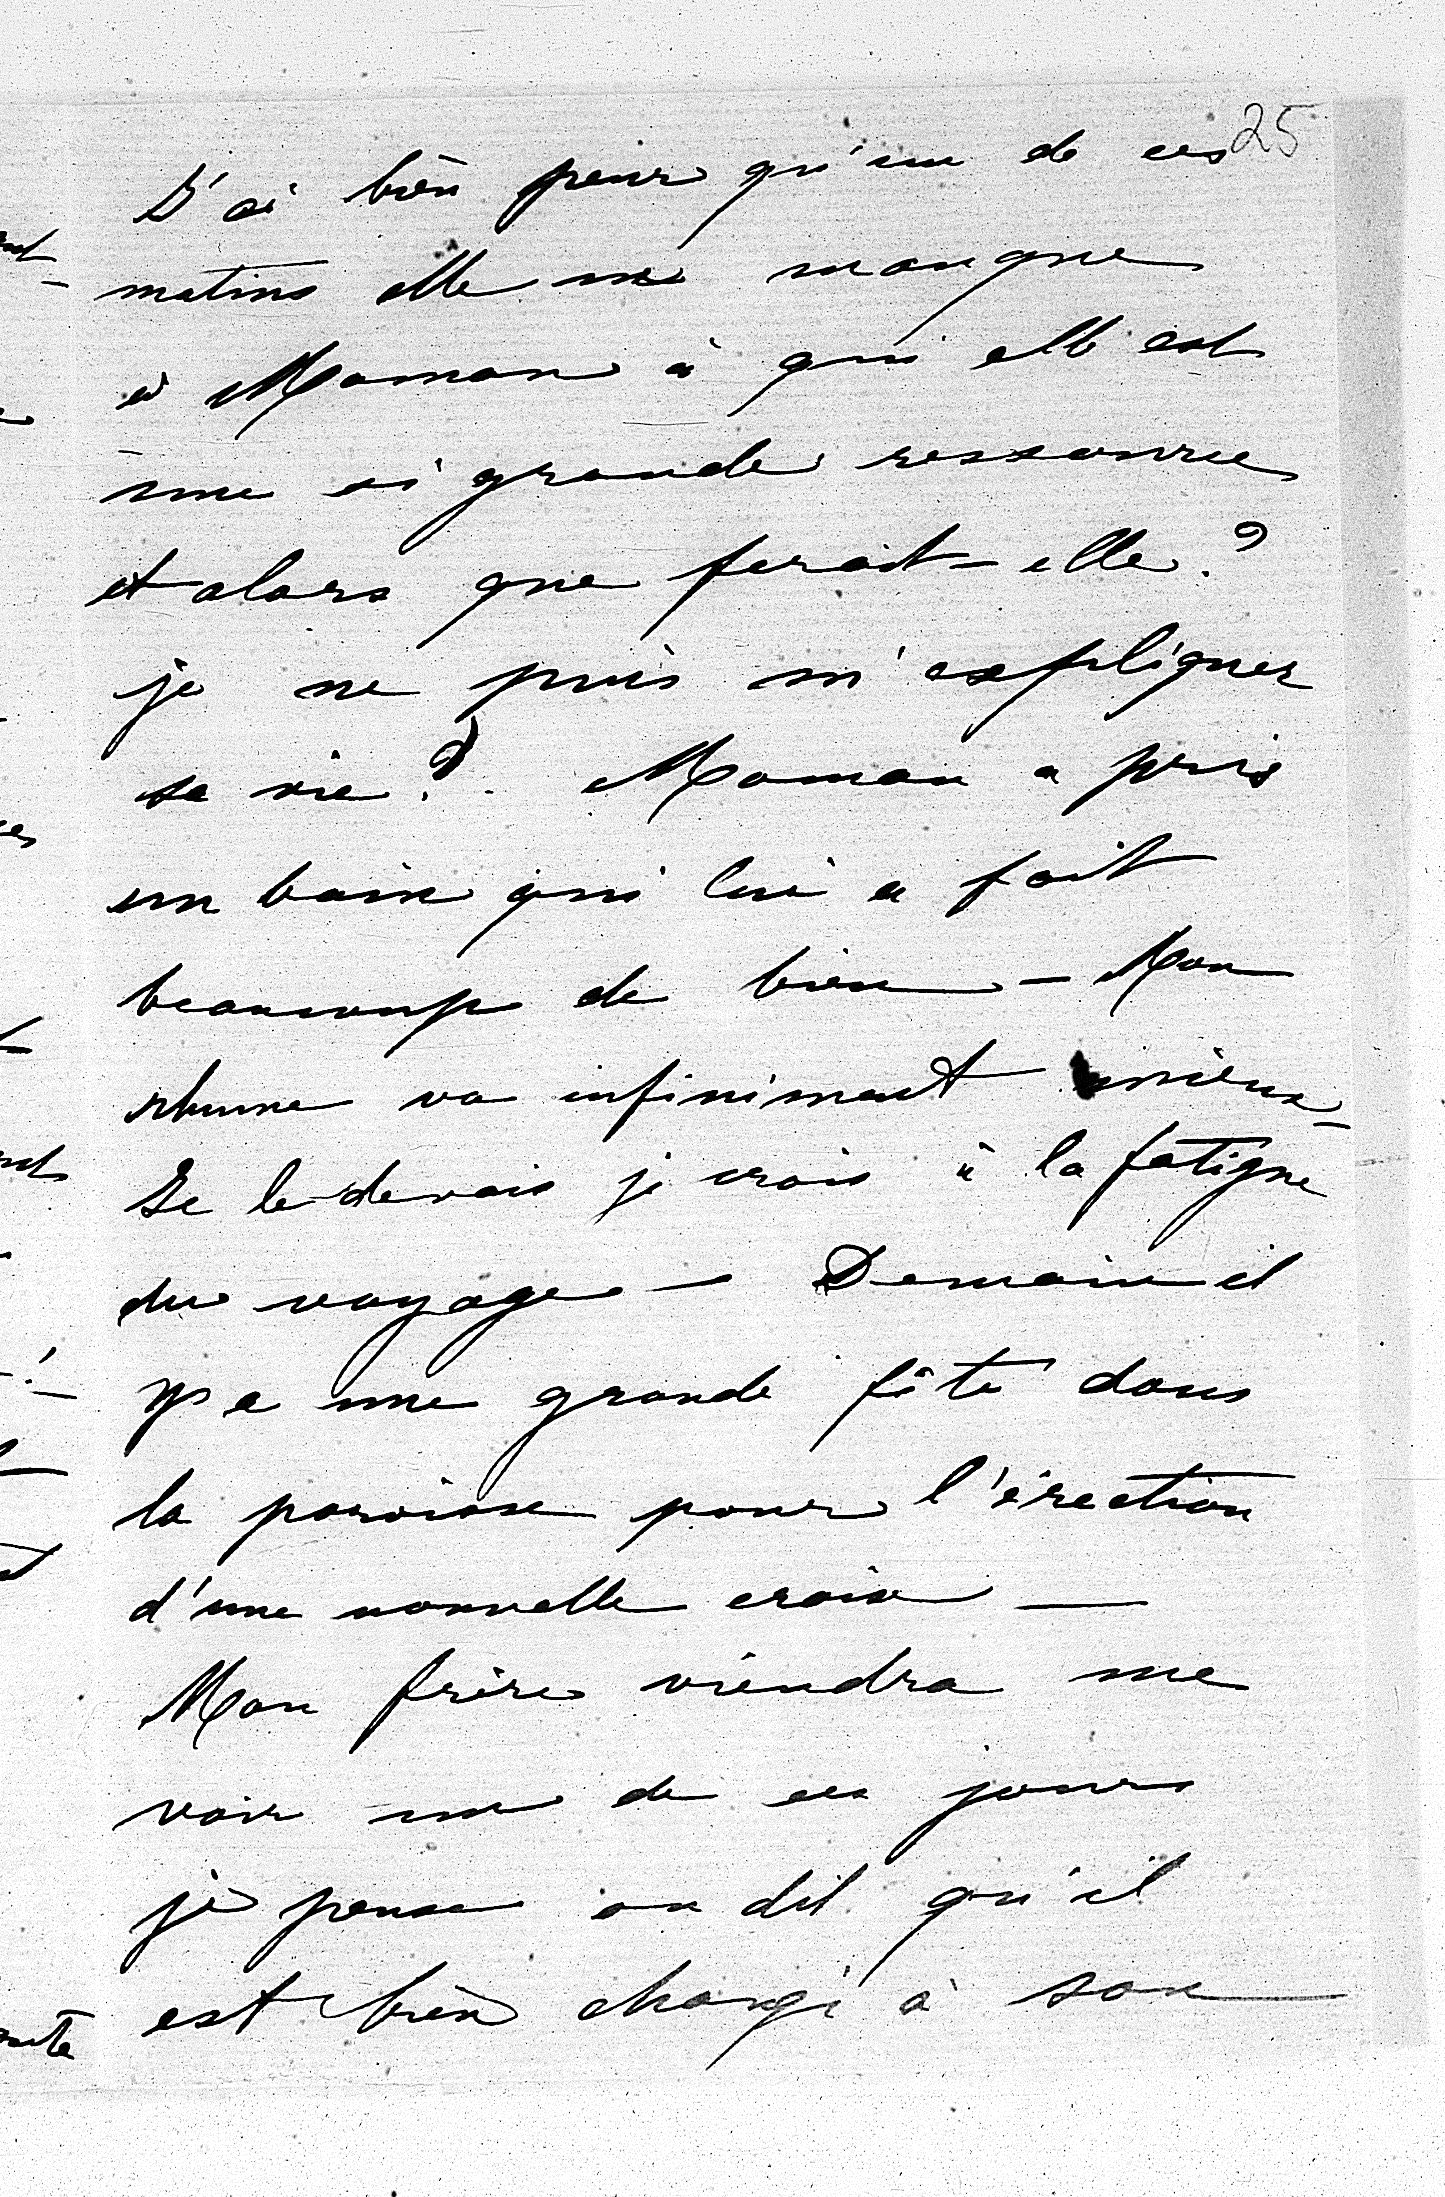 25
J'ai bien peur qu'un de ces
matins elle ne manque
à Maman à qui elle est
une si grande ressource
et alors que ferait-elle?
je ne puis m'expliquer
sa vie? Maman a pris
un bain qui lui a fait
beaucoup de bien — Mon
rhume va infiniment mieux —
Je le devais je crois à la fatigue
du voyage — Demain il
y a une grande fête dans
la paroisse pour l'érection
d'une nouvelle croix —
Mon frère viendra me
voir un de ces jours
je pense on dit qu'il
est bien changé à son